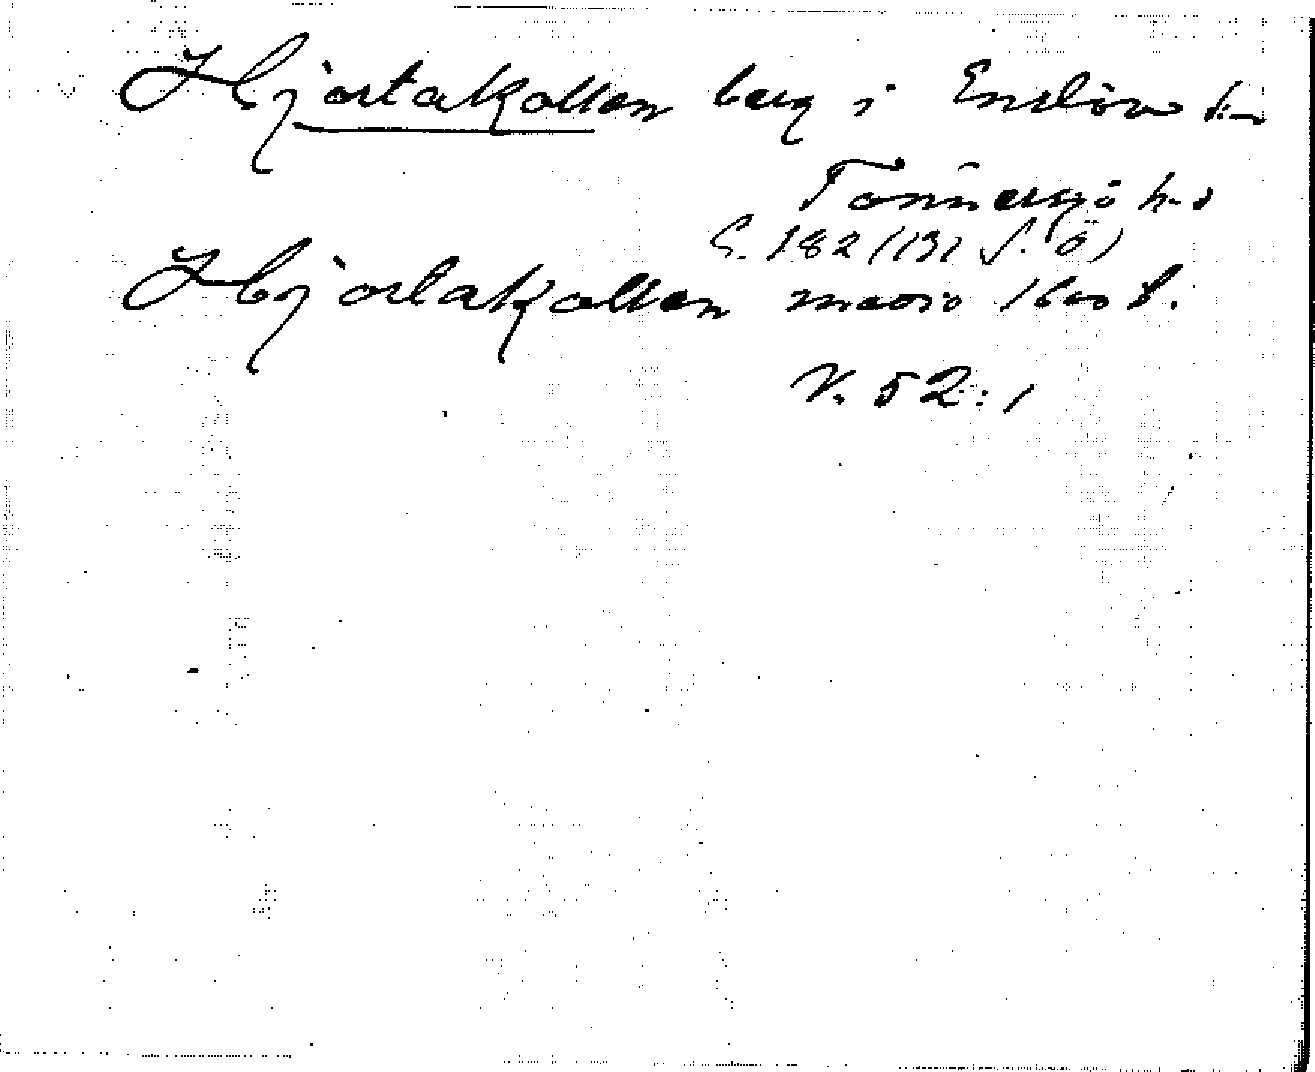 Hjortakollen berg i Enslöv sn
Tönnersjö h-d
S. 182 (131 S. Ö)
Hjortakollen 1600 t.
V. 52:1